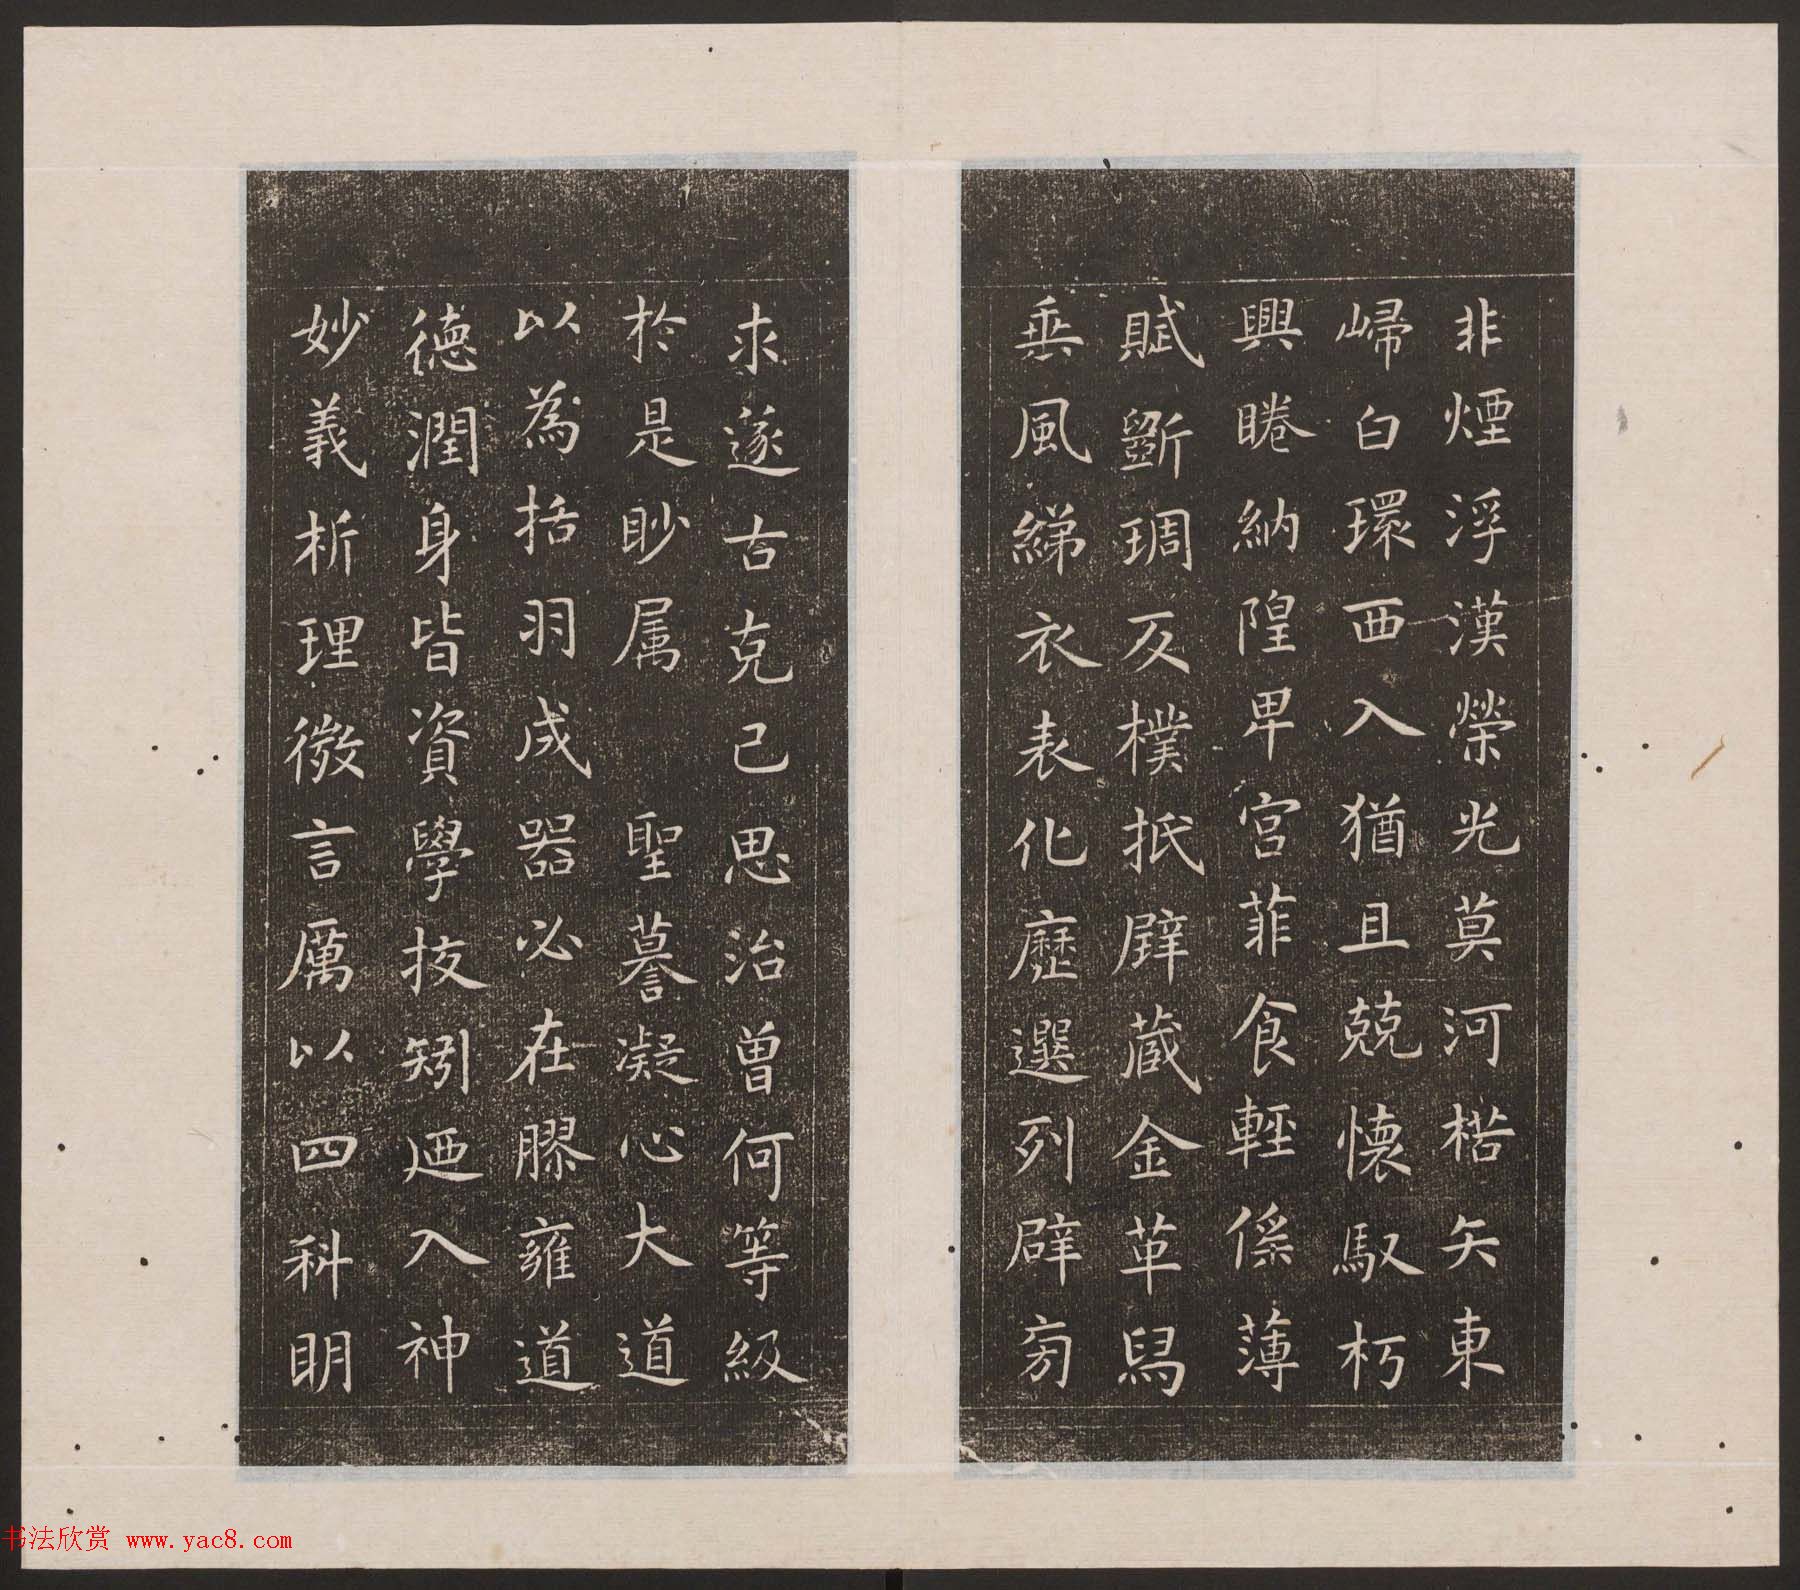 非煙浮漢榮光莫河楛矢東
歸白環西入猶且兢懷馭朽
興睠納隍卑宮菲食輕徭薄
賦斲琱反樸抵璧藏金革舄
垂風綈衣表化歷選列辟旁
求遂古克己思治曾何等級
於是眇属 聖暮凝心大道
以為括羽成器必在膠雍道
德潤身皆資學挍矧迺入神
妙義析理微言厲以四科明
书法欣赏 www.yac8.com